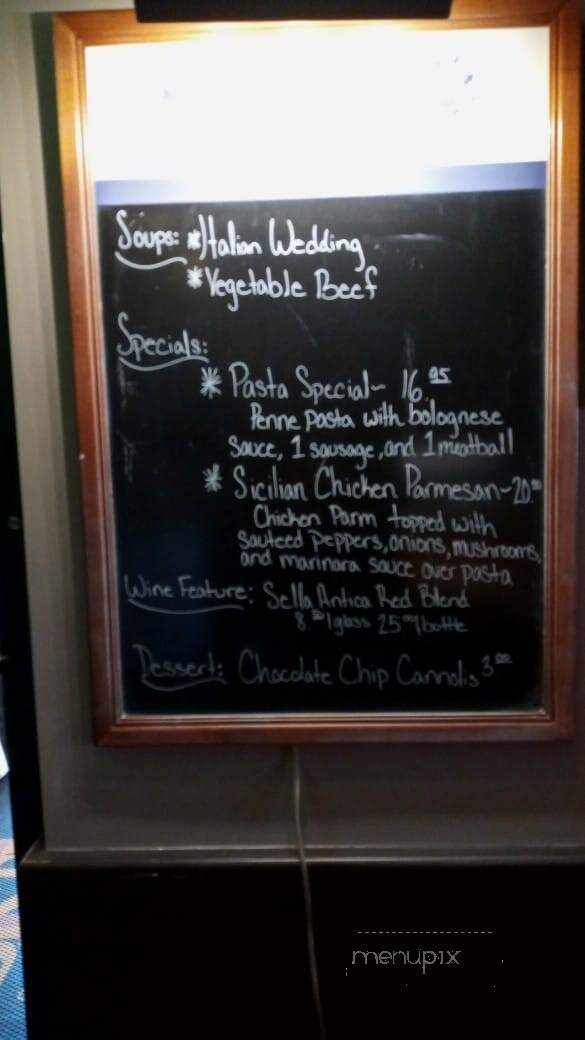 Soups: *Italian Wedding
*Vegetable Beef
Specials:
* Pasta Special~ 16.95
Penne pasta with bolognese
sauce, 1 sausage, and 1 meatball
* Sicilian Chicken Parmesan~20.
Chicken Parm topped with
sauteed peppers, onions, mushrooms,
and marinara sauce over pasta
Wine Feature: Sella Antica Red Blend
8. /glass 25 /bottle
Dessert: Chocolate Chip Cannolis 3.00
menupix